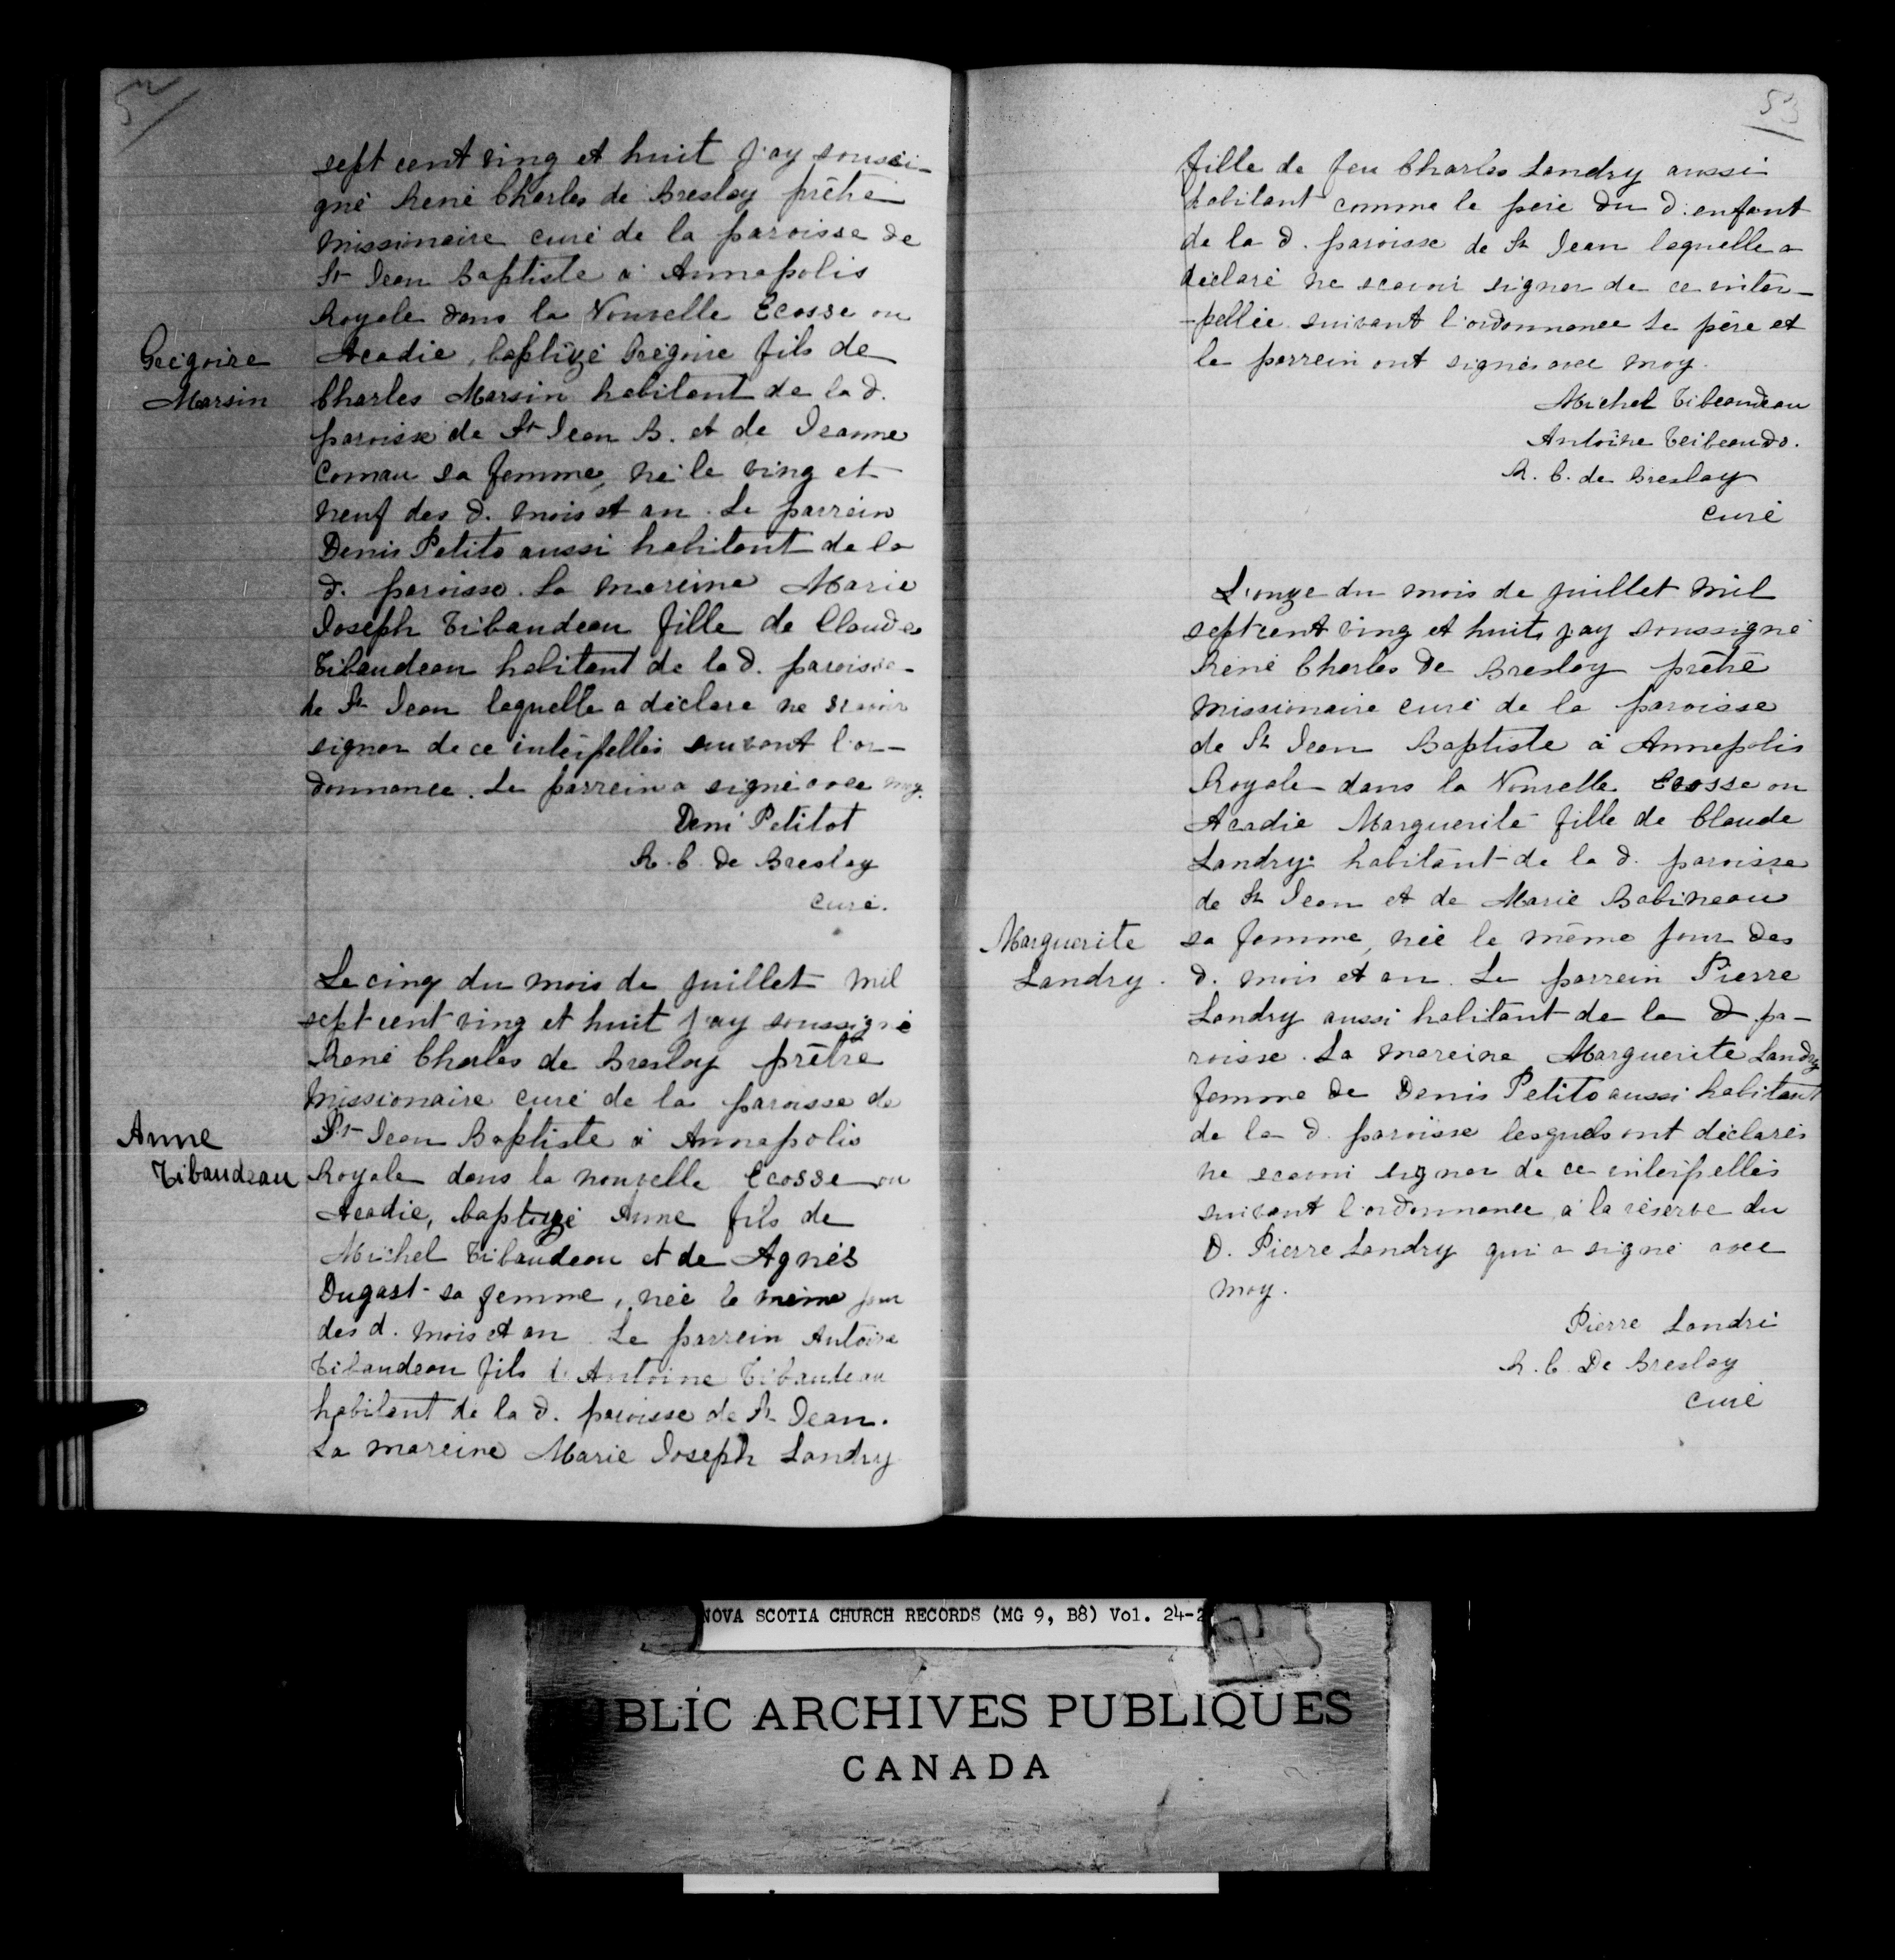 52
sept cent ving et huit j'ay soussi-
gné René Charles de Breslay prêtre
missionaire curé de la paroisse de
St Jean Baptiste à Annapolis
Royale dans la Nouvelle Ecosse ou
Grégoire Acadie, baptizé Grégoire fils de
Marsin Charles Marsin habitant de la d.
paroisse de St Jean B. et de Jeanne
Comau sa femme, né le ving et
neuf des d. mois et an. Le parrein
Denis Petito aussi habitant de la
d. paroisse. La mareine Marie
Joseph Tibaudeau fille de Claude
Tibaudeau habitant de la d. paroisse
de St Jean laquelle a déclare ne scavoir
signer de ce interpellés suivant l'or-
donnance. Le parrein a signé avec moy.
Deni Petitot
R. C. De Breslay
curé.
Le cinq du mois de juillet mil
sept cent ving et huit j'ay soussigné
René Charles de Breslay prêtre
missionaire curé de la paroisse de
Anne St Jean Baptiste à Annapolis
Tibaudeau Royale dans la nouvelle Ecosse ou
Acadie, baptizé Anne fils de
Michel Tibaudeau et de Agnés
Dugast sa femme, née le même jour
des d. mois et an. Le parrein Antoine
Tibaudeau fils d'Antoine Tibaudeau
habitant de la d. paroisse de St Jean.
La mareine Marie Joseph Landry
53
fille de feu Charles Landry aussi
habitant comme le pére du d. enfant
de la d. paroisse de St Jean laquelle a
déclaré ne scavoir signer de ce inter-
-pellée suivant l'ordonnance Le pére et
le parrein ont signés avec moy.
Michel Tibeaudeau
Antoine Teibeaudo.
R. C. de Breslay
curé
L'onze du mois de juillet mil
sept cent ving et huit, j'ay soussigné
René Charles De Breslay prêtre
missionaire curé de la paroisse
de St Jean Baptiste à Annapolis
Royale dans la Nouvelle Ecosse ou
Acadie Marguerite fille de Claude
Landry habitant de la d. paroisse
de St Jean et de Marie Babineau
Marguerite sa femme, née le même jour des
Landry. d. mois et an. Le parrein Pierre
Landry aussi habitant de la d. pa-
roisse. La mareine Marguerite Landry
femme de Denis Petito aussi habitant
de la d. paroisse lesquels ont déclarés
ne scavoi signer de ce interpellés
suivant l'ordonnance, à la réserve du
D. Pierre Landry qui a signé avec
moy.
Pierre Landri
R. C. De Breslay
curé
NOVA SCOTIA CHURCH RECORDS (MG 9, B8) Vol. 24-2
BLIC ARCHIVES PUBLIQUES
CANADA